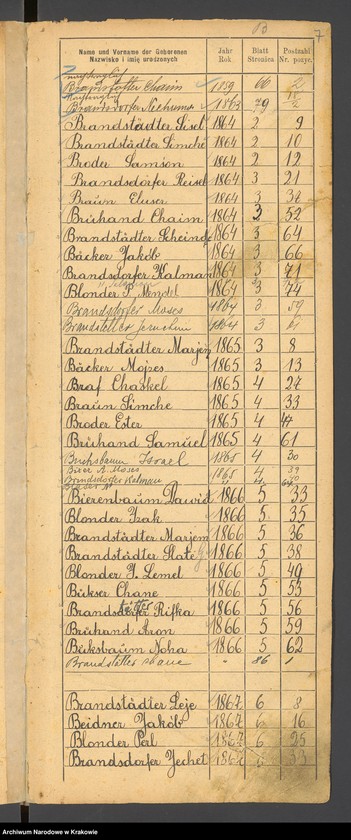 B 7
Name und Vorname der Geborenen Jahr Blatt Postzahl
Nazwisko i imię urodzonych Rok. Stronica Nr. pozyc.
nachträglich
Brandstätter Chaim 1859 66 2
nachträglich
Brandsdorfer Nechume 1863 79
Brandstädter Sisel 1864 2 9
Brandstädter Simche 1864 2 10
Broder Samson 1864 2 12
Brandsdörfer Reisel 1864 3 21
Braün Eluser 1864 3 38
Brühand Chaim 1864 3 52
Brandstädter Scheindel 1864 3 64
Bäcker Jakób 1864 3 66
Brandsdorfer Kalman 1864 3 71
Blonder Mendel 1864 3 74
Brandsdorfer Moses 1864 3 59
Brandstetter Jeruchim 1864 3
Brandstädter Marjem 1865 3 8
Bäcker Mojzes 1865 3 13
Braf Chaskel 1865 4 27
Braün Simche 1865 4 33
Broder Ester 1865 4 47
Brühand Samuel 1865 4 61
Buchsbaum Israel 1865 4 30
Bier A. Moses 1865 4 39
Brandsdorfer Kalman 4
Bierenbaum Dawid 1866 5 33
Blonder Izak 1866 5 35
Brandstädter Marjem 1866 5 36
Brandstädter Slate 1866 5 38
Blonder J. Lemel 1866 5 49
Bükser Chane 1866 5 53
Brandsdorfer Rifka 1866 5 56
Brühand Aron 1866 5 59
Bucksbaum Noha 1866 5 62
Brandstetter Chane " 86 1
Brandstädter Leje 1867 6 8
Beidner Jakób 1867 6 16
Blonder Perl 1867 6 25
Brandsdorfer Jechet 1867 6 33
Archiwum Narodowe w Krakowie